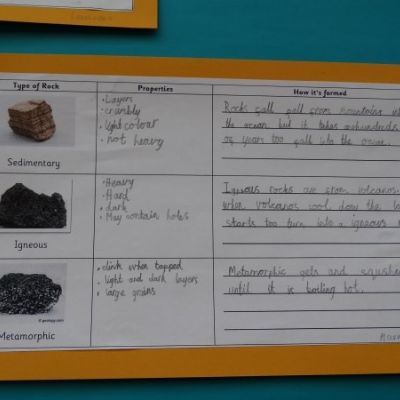 Type of Rock
Properties
How it's formed
Sedimentary
• Layers
• crumbly
• light colour
• not heavy
Rocks fall fall from mountains
the ocean but it takes
of years too fall into the ocean.
Igneous
• Heavy
• Hard
• dark
• May contain holes
Igneous rocks are from volcanos.
when volcanos cool down the
starts too turn into a igneous
Metamorphic
© geology.com
• clink when tapped
• light and dark layers
• large grains
Metamorphic gets and
until it is boiling hot.